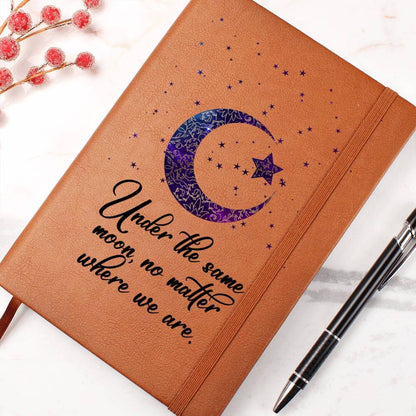 Under the same
moon, no matter
where we are.